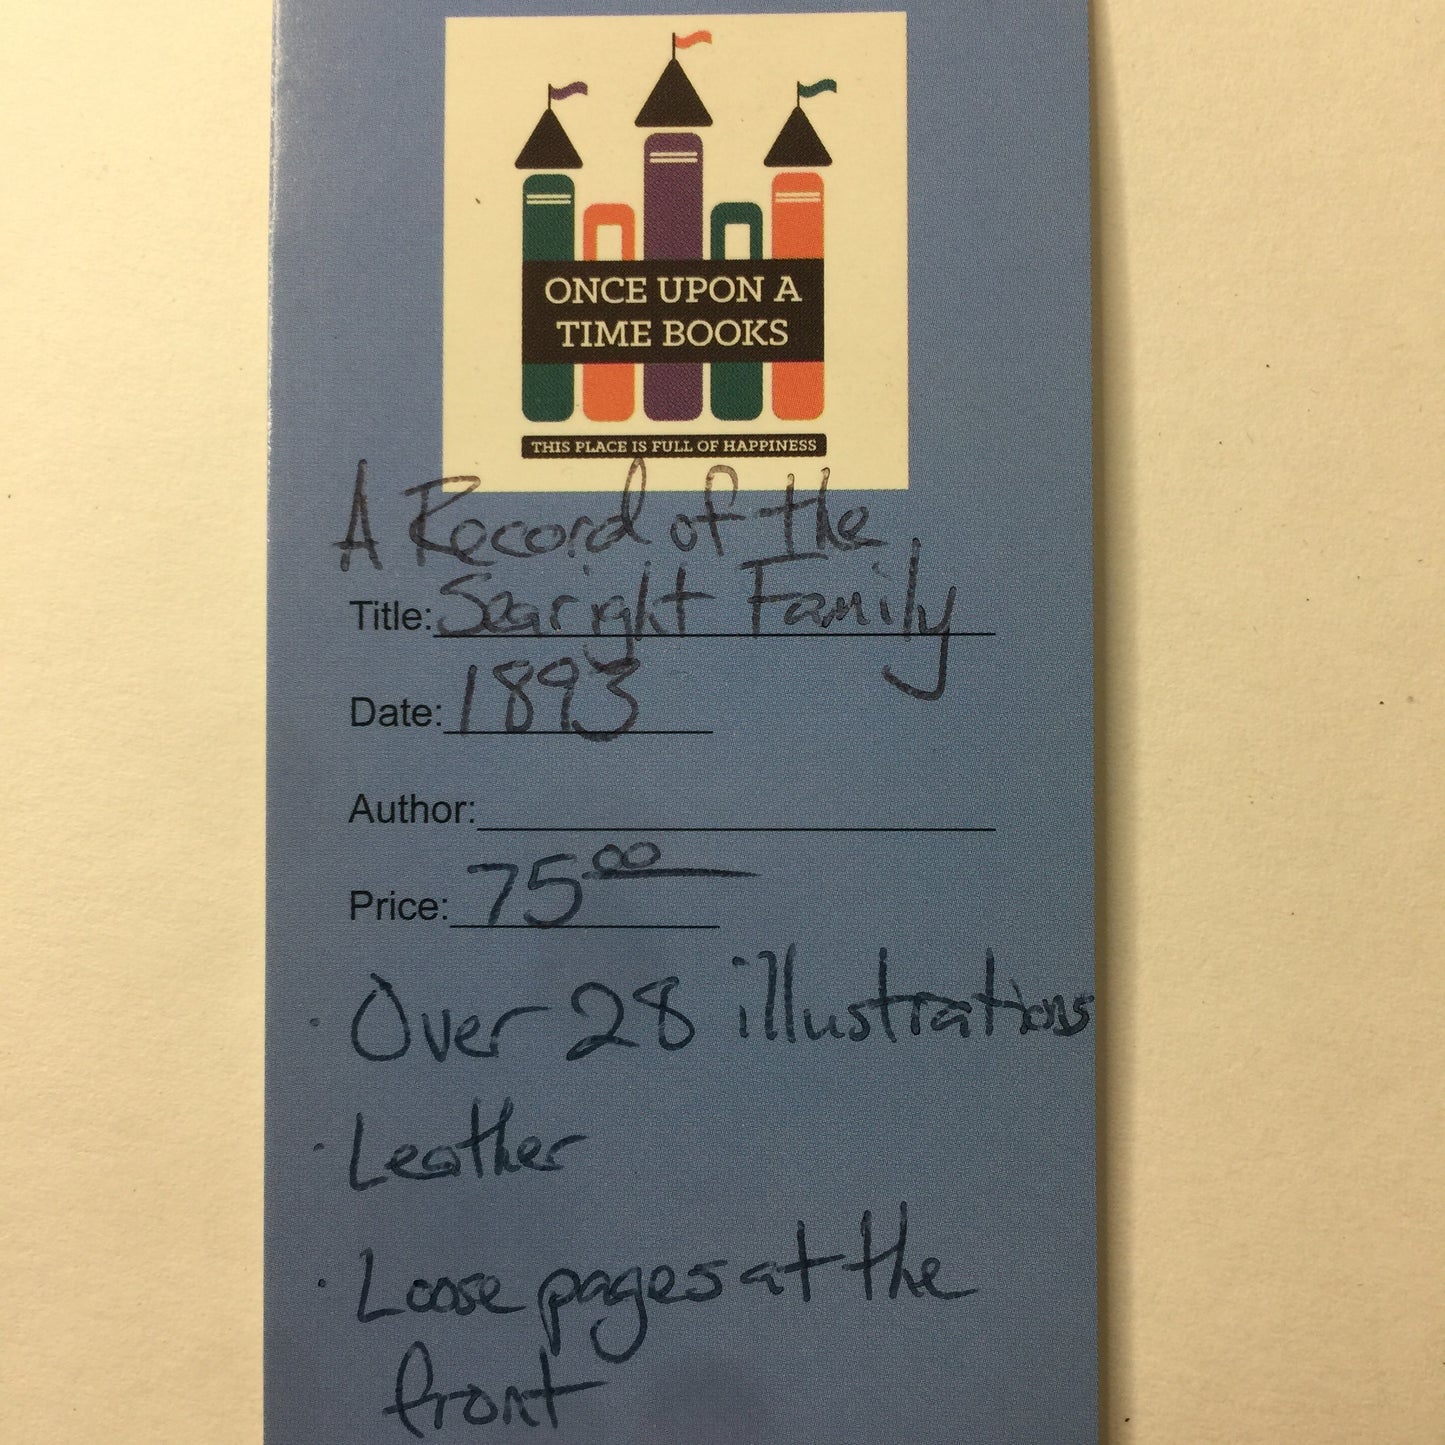 ONCE UPON A
TIME BOOKS
THIS PLACE IS FULL OF HAPPINESS
A Record of the
Title: Searight Family
Date: 1893
Author:
Price: 75 00
· Over 28 illustrations
· Leather
· Loose pages at the
front